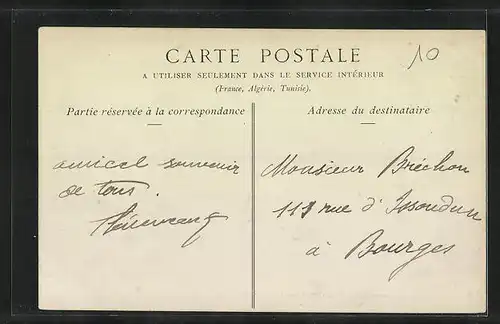 CARTE POSTALE
10
A UTILISER SEULEMENT DANS LE SERVICE INTÉRIEUR
(France, Algérie, Tunisie).
Partie réservée à la correspondance
Adresse du destinataire
amical souvenir
de tous.
Monsieur Bréchon
113 rue d'Issoudun
à Bourges